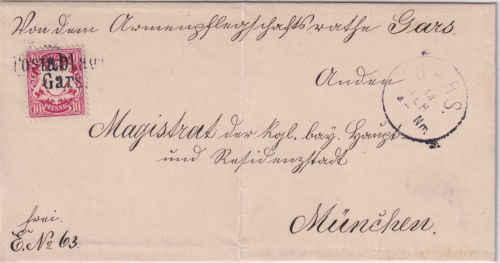 Von dem Armenpflegschaftsrathe Gars.
Postabl
Gars
PFENNIG
10 10
An den
Magistrat der kgl. bay. Haupt-
und Residenzstadt
München.
frei.
E. No 63.
RS.
Nm.